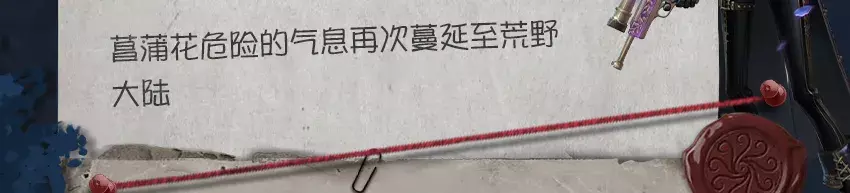 菖蒲花危险的气息再次蔓延至荒野
大陆